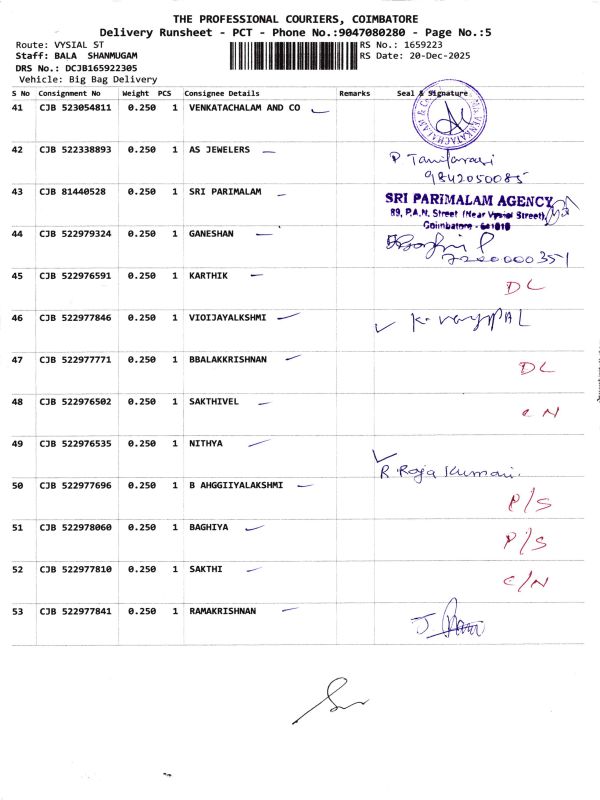 THE PROFESSIONAL COURIERS, COIMBATORE
Delivery Runsheet - PCT - Phone No.:9047080280 - Page No.:5
Route: VYSIAL ST
Staff: BALA SHANMUGAM
DRS No.: DCJB165922305
Vehicle: Big Bag Delivery
RS No.: 1659223
RS Date: 20-Dec-2025
S No Consignment No Weight PCS Consignee Details Remarks Seal & Signature
41 CJB 523054811 0.250 1 VENKATACHALAM AND CO
42 CJB 522338893 0.250 1 AS JEWELERS
9842050085
43 CJB 81440528 0.250 1 SRI PARIMALAM
SRI PARIMALAM AGENCY
89, P.A.N. Street (Near Vysial Street),
Coimbatore - 641010
44 CJB 522979324 0.250 1 GANESHAN
7200000351
45 CJB 522976591 0.250 1 KARTHIK DL
46 CJB 522977846 0.250 1 VIOIJAYALKSHMI
47 CJB 522977771 0.250 1 BBALAKKRISHNAN DL
48 CJB 522976502 0.250 1 SAKTHIVEL CN
49 CJB 522976535 0.250 1 NITHYA R Raja Kumari.
50 CJB 522977696 0.250 1 B AHGGIIYALAKSHMI P/S
51 CJB 522978060 0.250 1 BAGHIYA P/S
52 CJB 522977810 0.250 1 SAKTHI C/N
53 CJB 522977841 0.250 1 RAMAKRISHNAN